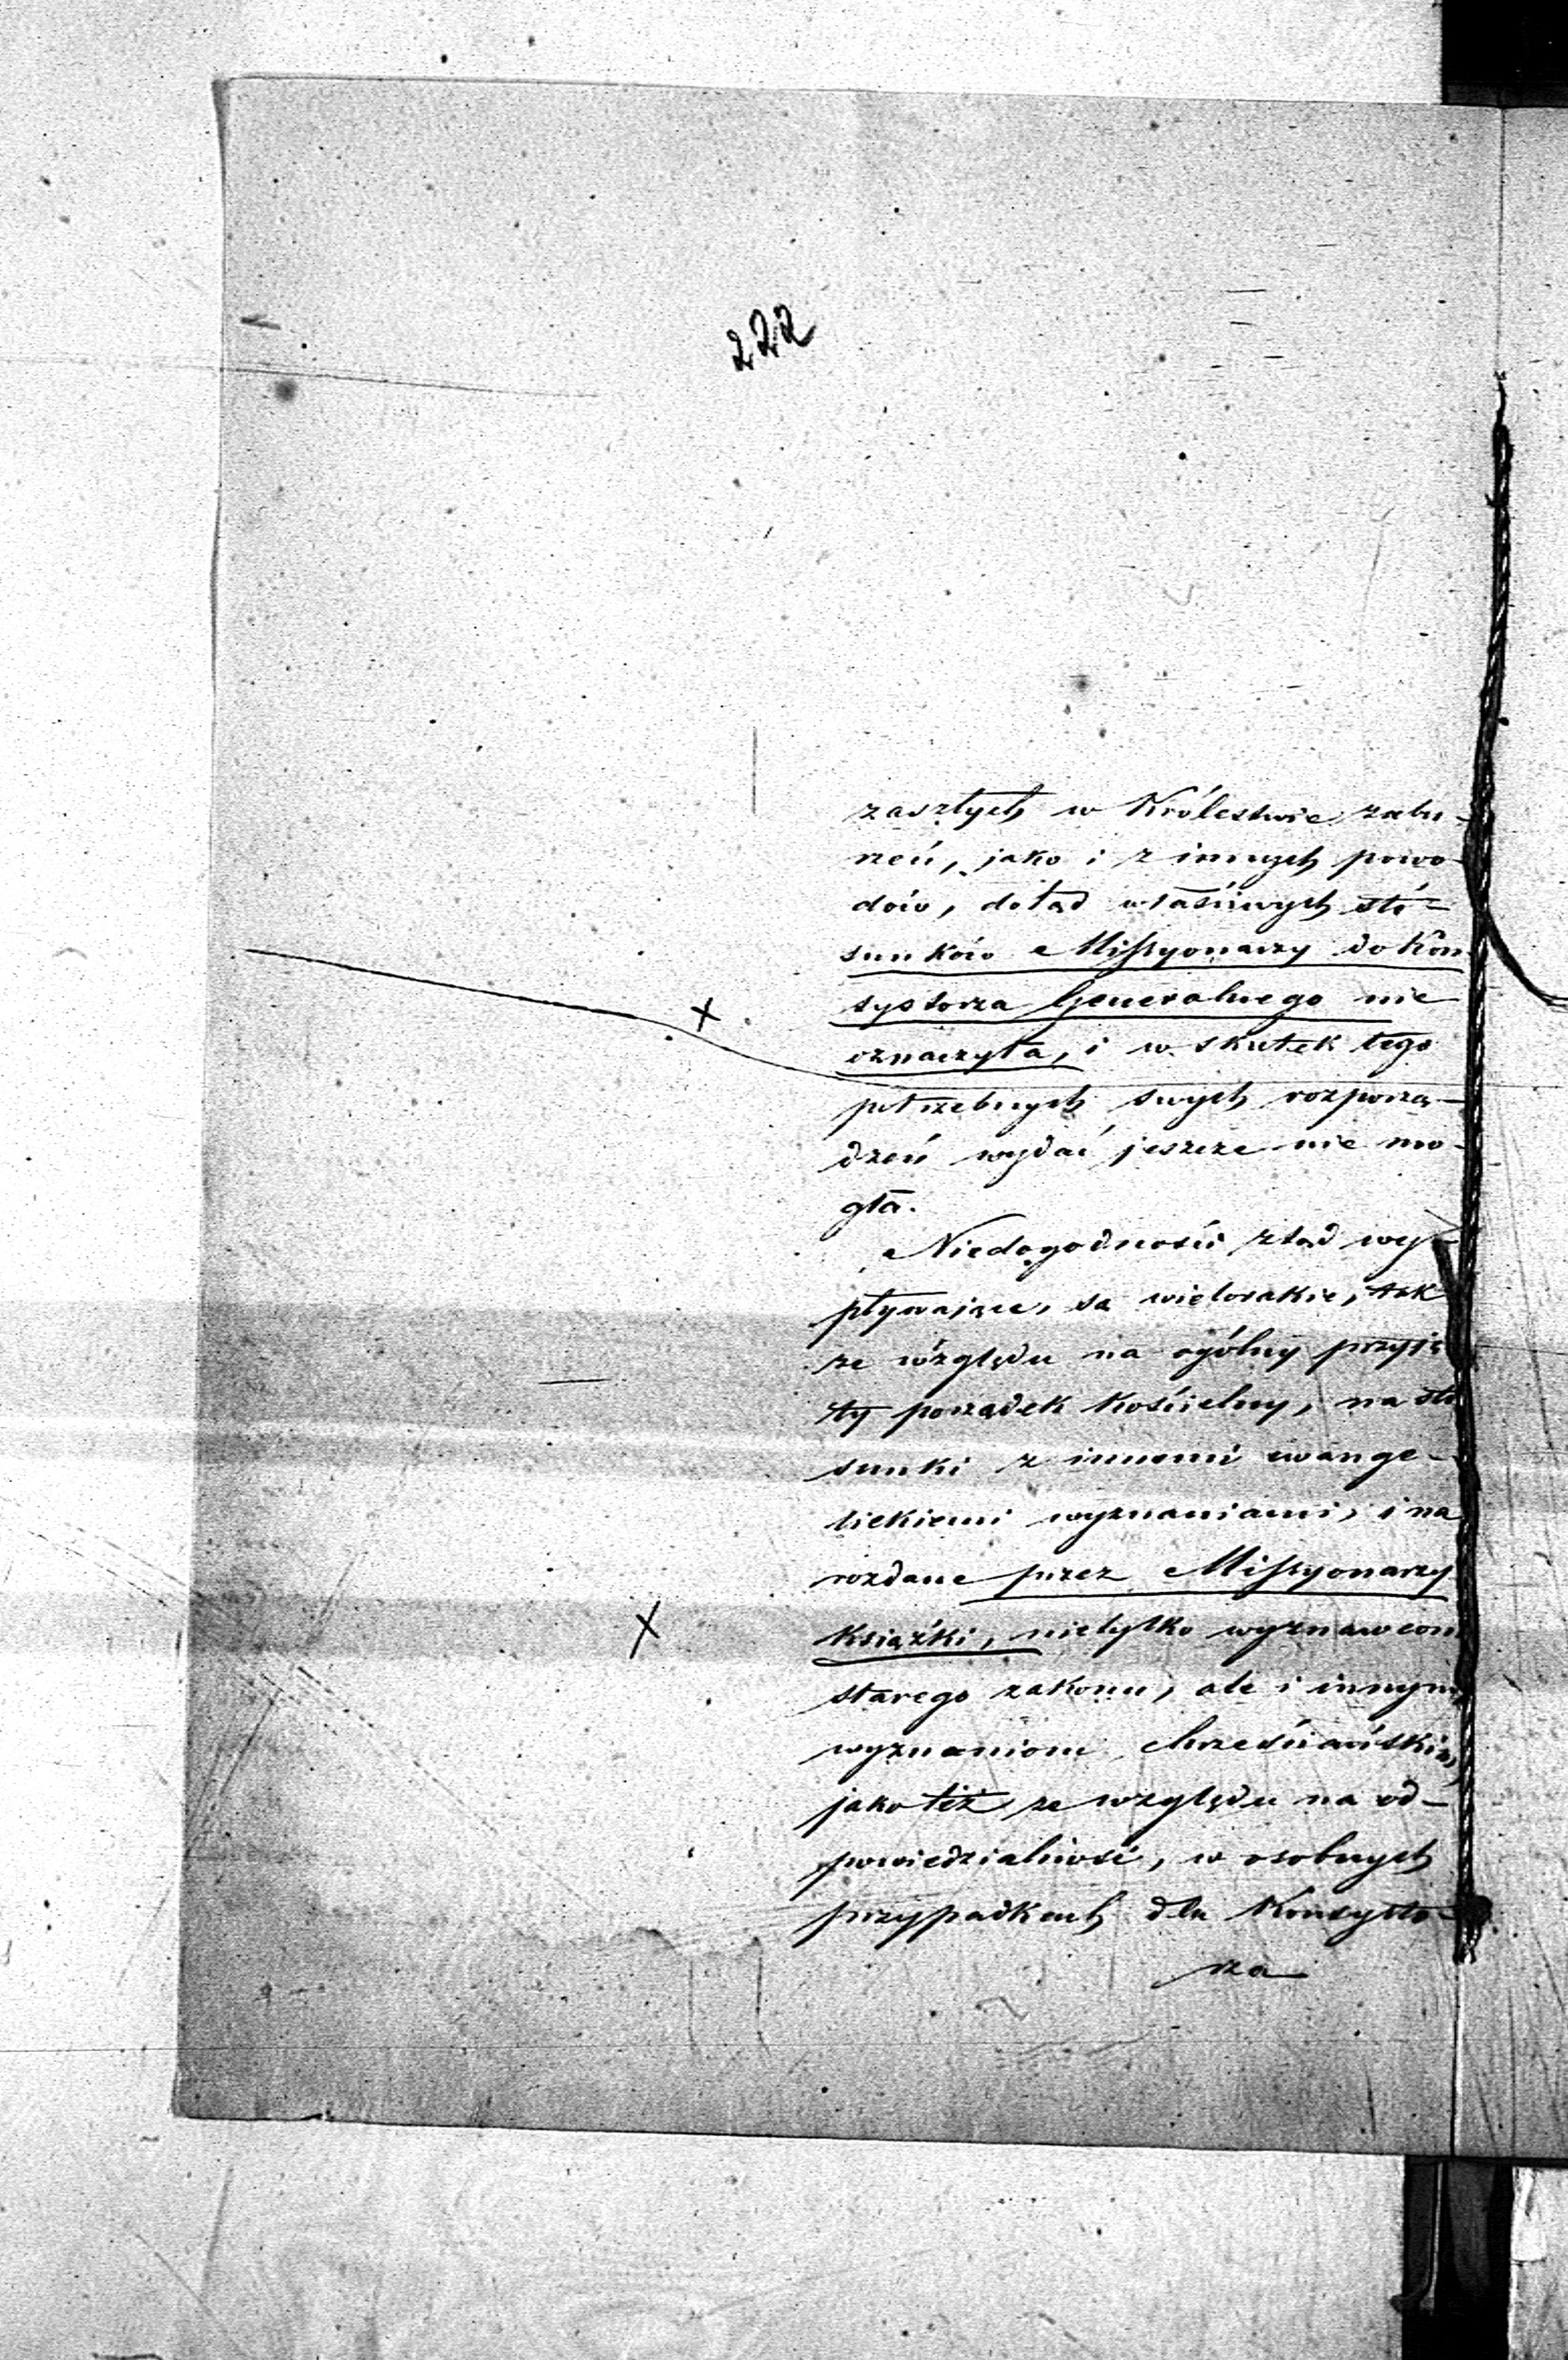 222
zaszłych w Królestwie zabu-
rzeń, jako i z innych powo-
dów, dotąd właściwych stó-
sunków Missyonarzy do Kon
systorza Generalnego nie
oznaczyła, i w skutek tego
potrzebnych swych rozporzą-
dzeń wydać jeszcze nie mo-
gła.
Niedogodności ztąd wy-
pływające, są wielorakie, tak
ze względu na ogólny przyję
ty porządek kościelny, na stó
sunki z innemi ewange-
lickiemi wyznaniami, i na
rozdane przez Missyonarzy
książki, nietylko wyznawcom
starego zakonu, ale i innym
wyznaniom chrześciańskim,
jako też ze względu na od-
powiedzialność, w osobnych
przypadkach dla Konsysto-
rza